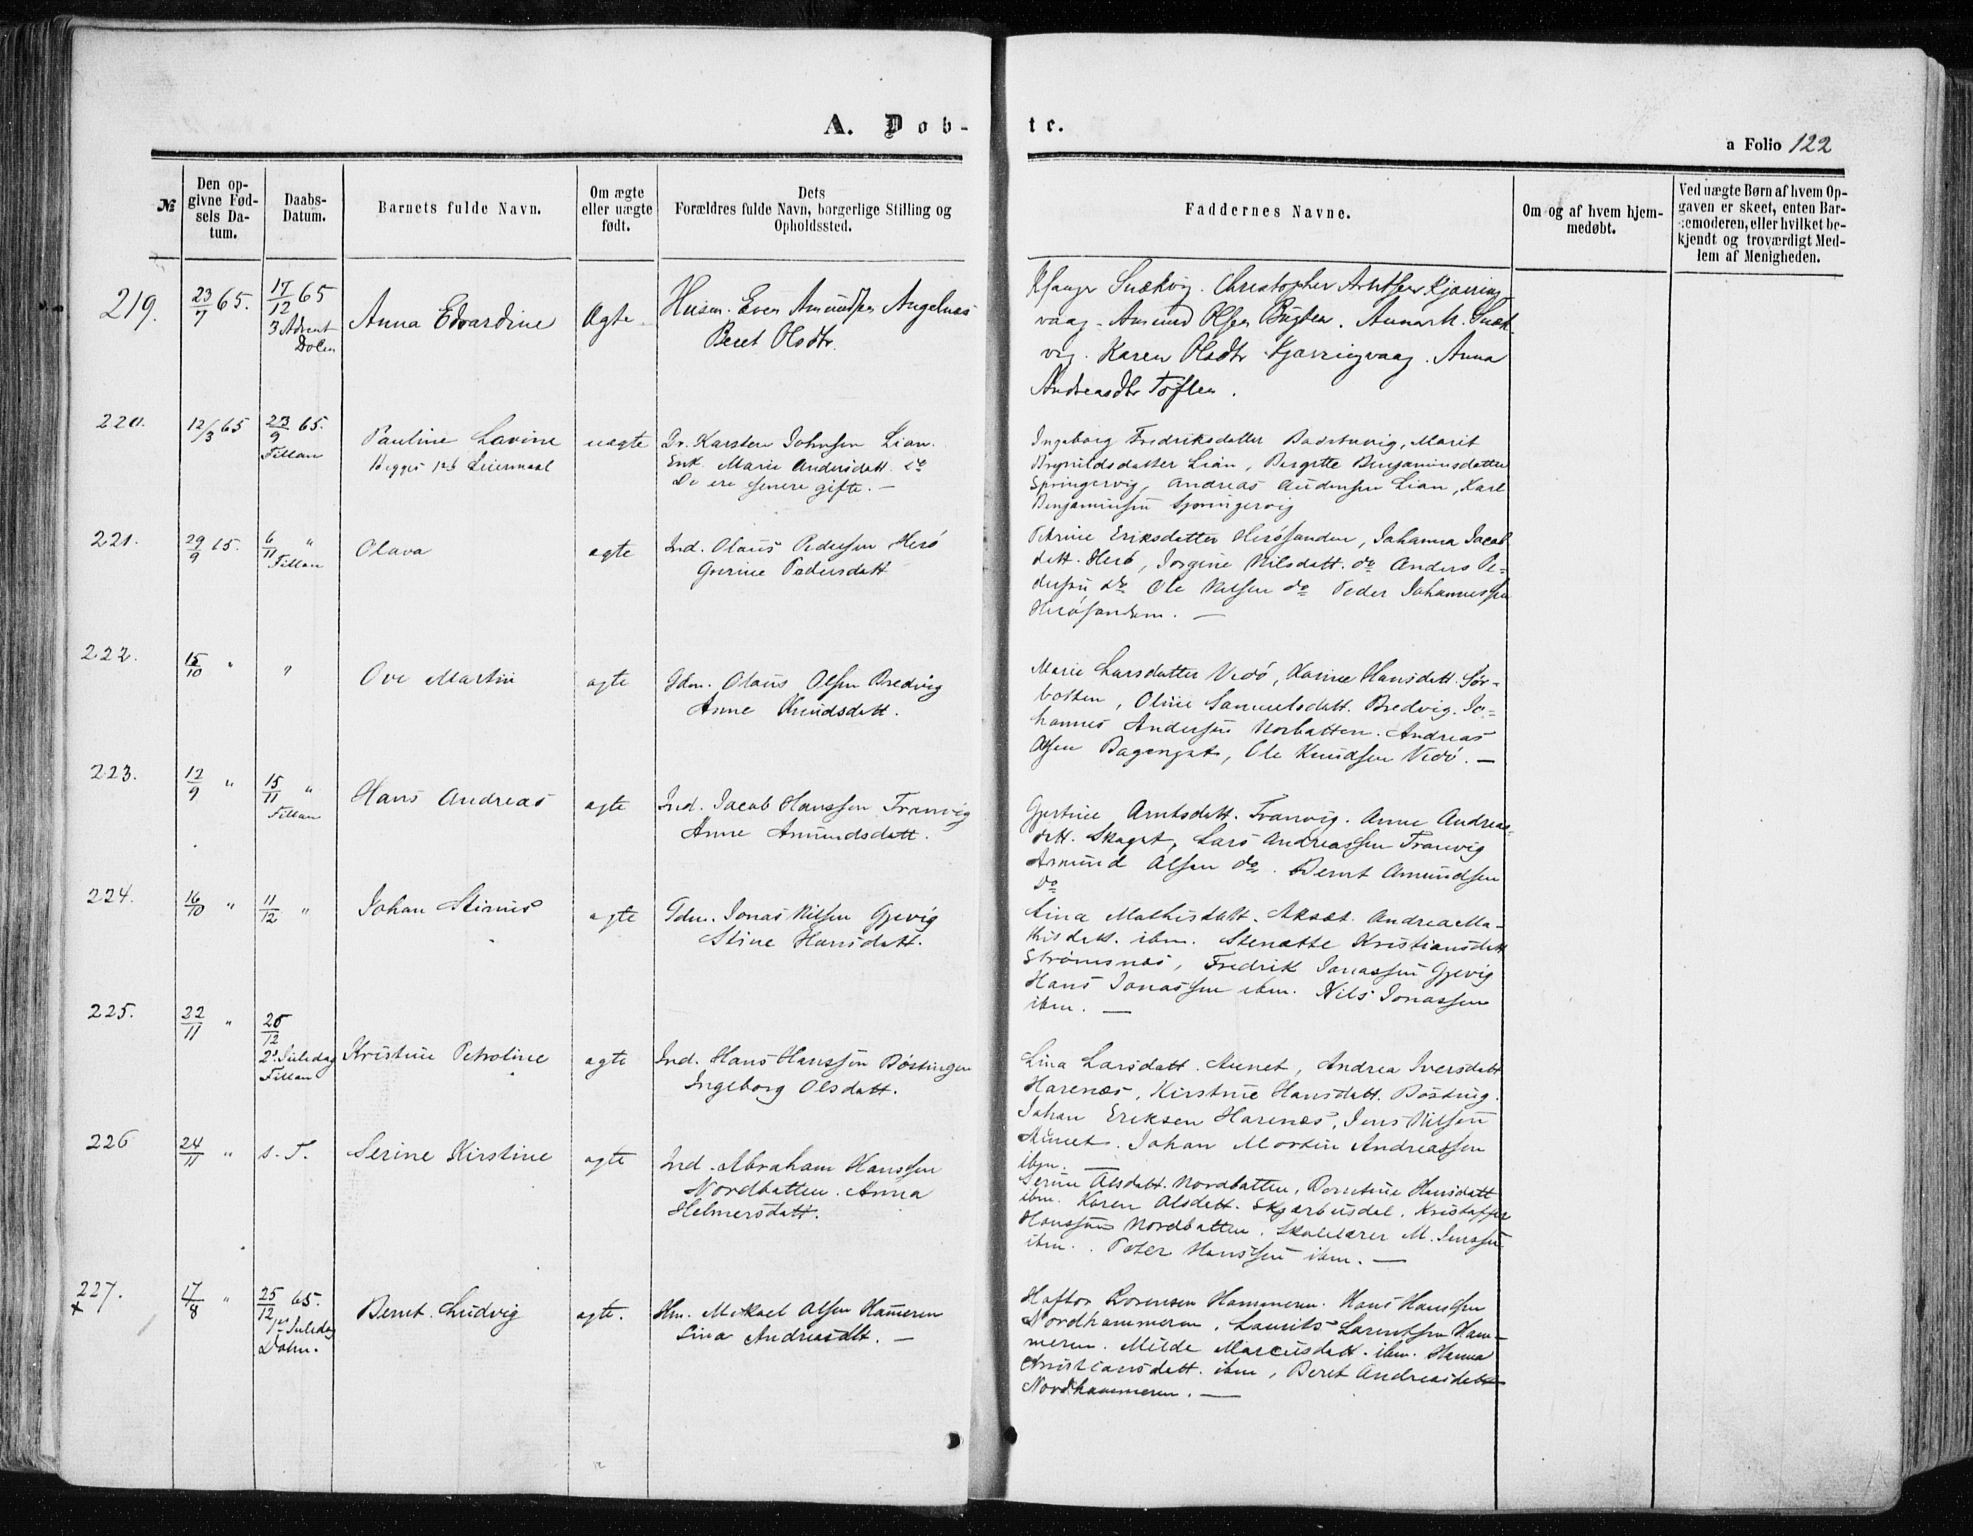 A. Døb-te.
a Folio 122
№
Den op-
givne Fød-
sels Da-
tum.
Daabs-
Datum.
Barnets fulde Navn.
Om ægte
eller uægte
født.
Dets
Forældres fulde Navn, borgerlige Stilling og
Opholdssted.
Faddernes Navne.
Om og af hvem hjem-
medøbt.
Ved uægte Børn af hvem Op-
gaven er skeet, enten Bar-
nemoderen, eller hvilket be-
kjendt og troværdigt Med-
lem af Menigheden.
219.
23/7 65.
17/12 65
3 Advent
Dolm
Anna Edvardine
Ægte
Husm. Even Amundsen
Beret Olsdtr.
Snækvig. Christopher Kjærring
vaag. Amund Olsen Bugten. Snæk
vig. Karen Olsdtr Kjærringvaag. Anna
Andreasdtr Toften.
220.
12/3 65
23/9 65.
Fillan
Pauline Lavine
Begges 1ste Leiermaal
uægte
Karsten Johnsen Lian.
Enk. Marie Andersdatt. do
De ere senere gifte. —
Ingeborg Fredriksdatter Badstuvig, Marit
Brynildsdatter Lian, Birgitte Benjaminsdatter
Springervig, Andreas Lian, Karl
Benjaminsen Springervig
221.
29/9 65.
6/11 "
Fillan
Olava
ægte
Ind. Olaus Pedersen Herø
Gurine Pedersdatt
Petrine Eriksdatter Herøsanden, Johanna Jacob
datt. Herø, Jorgine Nilsdatt. do Anders Pe-
dersen do Ole Nilsen do Peder Johannessen
Herøsanden. —
222.
15/10 "
"
Ove Martin
ægte
Gdm. Olaus Olsen Bredvig
Anne Knudsdatt.
Marie Larsdatter Vedø, Karine Hansdatt. Sør-
botten, Oline Samuelsdatt. Bredvig. Jo-
hannes Andersen Norbotten. Andreas
Olsen Bagøngst, Ole Knudsen Vedø. —
223.
12/9 "
15/11 "
Fillan
Hans Andreas
ægte
Ind. Jacob Hanssen Tranvig
Anne Amundsdatt.
Gjertine Arntsdatt. Tranvig. Anne Andreas-
datt. Skaget, Lars Andreassen Tranvig
Amund Olsen do. Bernt Amundsen
do
224.
16/10 "
11/12 "
Johan Stinus
ægte
Gdm. Jonas Nilsen Gjevig
Stine Hansdatt.
Lina Mathisdatt. Akset. Andrea Ma-
thisdatt. ibm. Stenatte Kristiansdatt
Strømsnæs, Fredrik Jonassen Gjevig
Hans Jonassen ibm. Nils Jonassen
ibm. —
225.
22/11 "
26/12
2. Juledag
Fillan
Kristine Petroline
ægte
Ind. Hans Hanssen Bøstingen
Ingeborg Olsdatt.
Lina Larsdatt. Aunet, Andrea Iversdatt
Harenæs, Kirstine Hansdatt. Bøsting.
Johan Eriksen Harenæs, Jens Nilsen
Aunet. Johan Martin Andreassen
ibm. —
226
24/11 "
s. T.
Serine Kirstine
ægte
Ind. Abraham Hanssen
Nordbotten. Anna
Helmersdatt.
Serine Olsdatt. Nordbotten, Berntine Hansdatt
ibm. Karen Olsdatt. Skjærbusdal. Kristoffer
Hanssen Nordbotten. Skolelærer M. Jenssen
ibm. Peter Hanssen ibm. —
227.
x
17/8 "
25/12 65.
1ste Juledag
Dolm.
Bernt Ludvig
ægte.
Hm. Mikael Olsen Hameren
Lina Andreasdtt. —
Haftor Lorensen Hammeren. Hans Hanssen
Nordhammeren. Laurits Larentsen Ham-
meren. Milde Marcusdatt. ibm. Hanna
Christiansdatt. ibm, Beret Andreasdatt
Nordhammeren. —